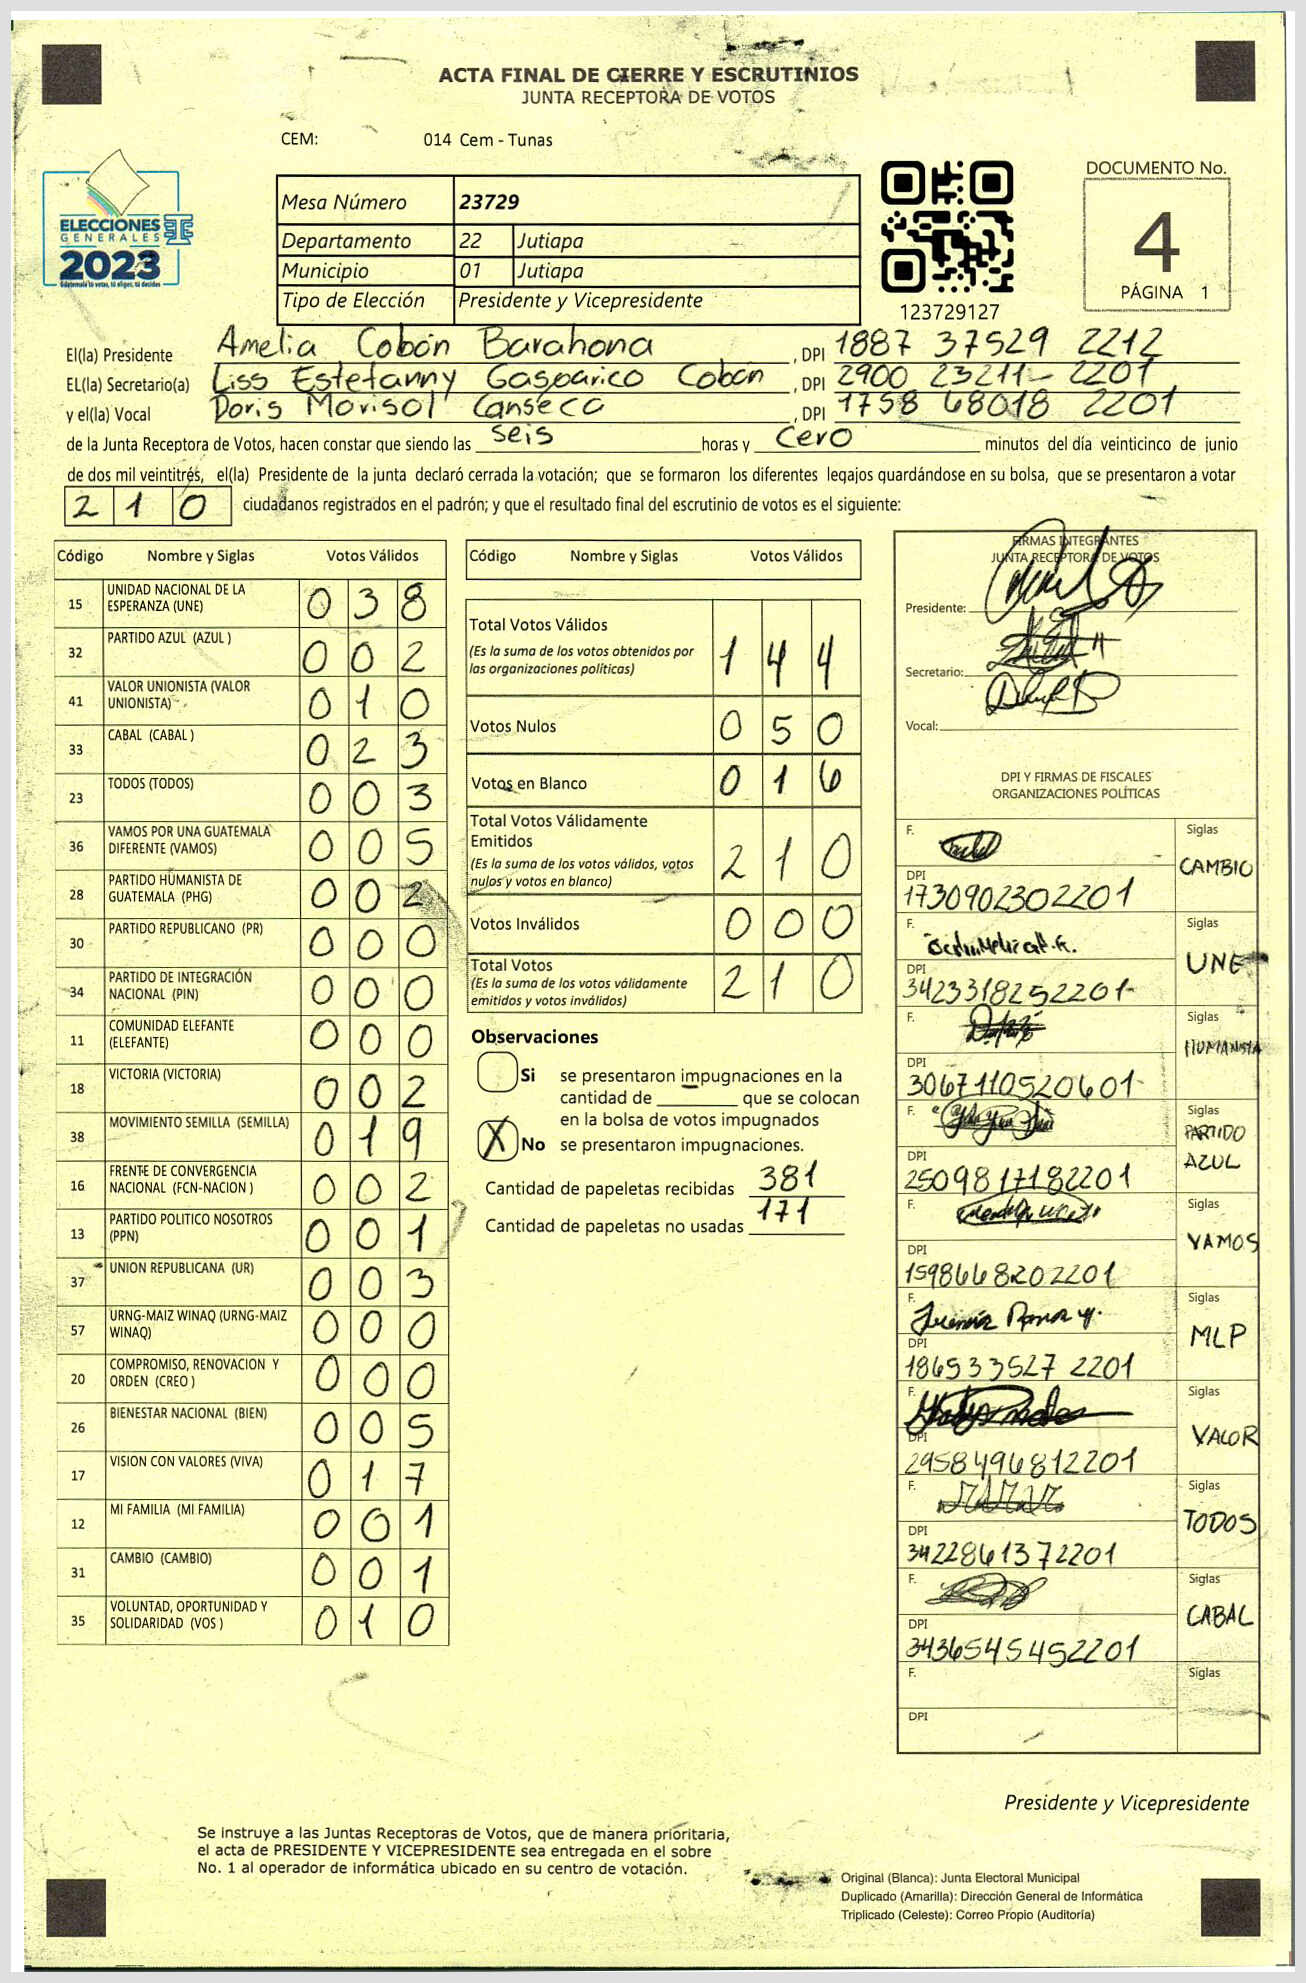 ACTA FINAL DE CIERRE Y ESCRUTINIOS
JUNTA RECEPTORA DE VOTOS
CEM: 014 Cem - Tunas
ELECCIONES
GENERALES
2023
Guatemala tú votas, tú eliges, tú decides
Mesa Número 23729
Departamento 22 Jutiapa
Municipio 01 Jutiapa
Tipo de Elección Presidente y Vicepresidente
123729127
DOCUMENTO No.
4
PÁGINA 1
El(la) Presidente Amelia Cobón Barahona , DPI 1887 37529 2212
EL(la) Secretario(a) Liss Estefanny Gasparico Cobón , DPI 2900 23211 2201
y el(la) Vocal Doris Morisol Canseco , DPI 1758 68018 2201
de la Junta Receptora de Votos, hacen constar que siendo las seis horas y cero minutos del día veinticinco de junio
de dos mil veintitrés, el(la) Presidente de la junta declaró cerrada la votación; que se formaron los diferentes legajos guardándose en su bolsa, que se presentaron a votar
210 ciudadanos registrados en el padrón; y que el resultado final del escrutinio de votos es el siguiente:
Código Nombre y Siglas Votos Válidos
15 UNIDAD NACIONAL DE LA ESPERANZA (UNE) 038
32 PARTIDO AZUL (AZUL ) 002
41 VALOR UNIONISTA (VALOR UNIONISTA) 010
33 CABAL (CABAL ) 023
23 TODOS (TODOS) 003
36 VAMOS POR UNA GUATEMALA DIFERENTE (VAMOS) 005
28 PARTIDO HUMANISTA DE GUATEMALA (PHG) 002
30 PARTIDO REPUBLICANO (PR) 000
34 PARTIDO DE INTEGRACIÓN NACIONAL (PIN) 000
11 COMUNIDAD ELEFANTE (ELEFANTE) 000
18 VICTORIA (VICTORIA) 002
38 MOVIMIENTO SEMILLA (SEMILLA) 019
16 FRENTE DE CONVERGENCIA NACIONAL (FCN-NACION ) 002
13 PARTIDO POLITICO NOSOTROS (PPN) 001
37 UNION REPUBLICANA (UR) 003
57 URNG-MAIZ WINAQ (URNG-MAIZ WINAQ) 000
20 COMPROMISO, RENOVACION Y ORDEN (CREO ) 000
26 BIENESTAR NACIONAL (BIEN) 005
17 VISION CON VALORES (VIVA) 017
12 MI FAMILIA (MI FAMILIA) 001
31 CAMBIO (CAMBIO) 001
35 VOLUNTAD, OPORTUNIDAD Y SOLIDARIDAD (VOS ) 010
Código Nombre y Siglas Votos Válidos
Total Votos Válidos 144
(Es la suma de los votos obtenidos por
las organizaciones políticas)
Votos Nulos 050
Votos en Blanco 016
Total Votos Válidamente
Emitidos 210
(Es la suma de los votos válidos, votos
nulos y votos en blanco)
Votos Inválidos 000
Total Votos 210
(Es la suma de los votos válidamente
emitidos y votos inválidos)
Observaciones
Si se presentaron impugnaciones en la
cantidad de ________ que se colocan
en la bolsa de votos impugnados
X No se presentaron impugnaciones.
Cantidad de papeletas recibidas 381
Cantidad de papeletas no usadas 171
FIRMAS INTEGRANTES
JUNTA RECEPTORA DE VOTOS
Presidente:
Secretario:
Vocal:
DPI Y FIRMAS DE FISCALES
ORGANIZACIONES POLÍTICAS
F. Siglas CAMBIO
DPI 1730902302201
F. Siglas UNE
DPI 3423318252201
F. Siglas HUMANISTA
DPI 3067110520601
F. Siglas PARTIDO AZUL
DPI 2509817182201
F. Siglas VAMOS
DPI 1598668202201
F. Siglas MLP
DPI 186533527 2201
F. Siglas VALOR
DPI 2958496812201
F. Siglas TODOS
DPI 3422861372201
F. Siglas CABAL
DPI 3436545452201
F. Siglas
DPI
Presidente y Vicepresidente
Se instruye a las Juntas Receptoras de Votos, que de manera prioritaria,
el acta de PRESIDENTE Y VICEPRESIDENTE sea entregada en el sobre
No. 1 al operador de informática ubicado en su centro de votación.
Original (Blanca): Junta Electoral Municipal
Duplicado (Amarilla): Dirección General de Informática
Triplicado (Celeste): Correo Propio (Auditoría)